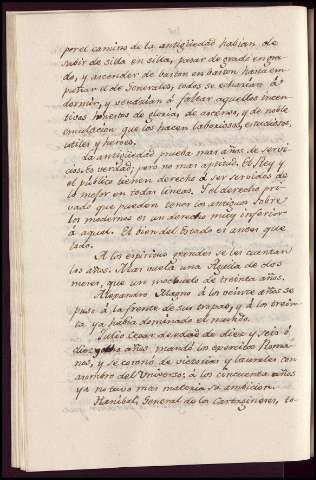 por el camino de la antigüedad habian de
subir de silla en silla, pasar de grado en gra-
do, y ascender de baston en baston hasta em-
puñar el de Generales, todos se echarian á
dormir, y vendrian á faltar aquellos incen-
tivos honestos de gloria, de ascenso, y de noble
emulacion que los hacen laboriosos, estudiosos,
utiles y heroes.
La antigüedad prueba mas años de servi-
cios. Es verdad; pero no mas aptitud. El Rey y
el publico tienen derecho á ser servidos de
lo mejor en todas lineas. Y el derecho pri-
vado que pueden tener los antiguos sobre
los modernos es un derecho muy inferior
á aquel. El bien del Estado es antes que
todo.
A los espiritus grandes se les cuentan
los años. Mas vuela una Aguila de dos
meses, que un mochuelo de treinta años.
Alexandro Magno á los veinte años se
puso á la frente de sus tropas, y á los trein-
ta ya habia dominado el mundo.
Julio Cesar de edad de diez y seis ó
diez y ocho años mandó los exercitos Roma-
nos, y se coronó de victorias y laureles con
asombro del Universo: á los cincuenta años
ya no tuvo mas materia su ambicion.
Hanibal, General de los Cartagineses, to-